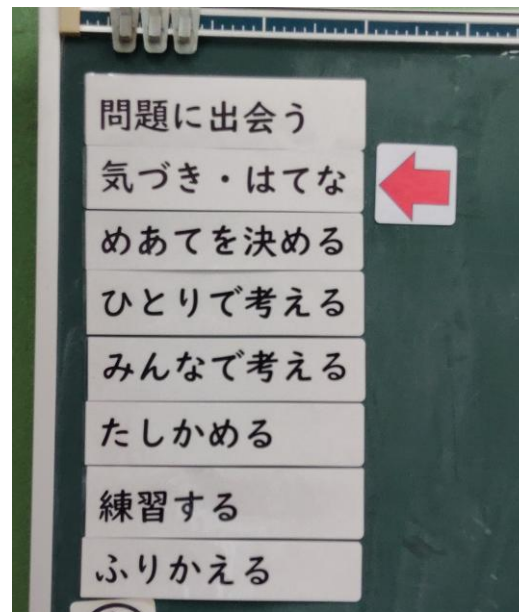 問題に出会う
気づき・はてな
めあてを決める
ひとりで考える
みんなで考える
たしかめる
練習する
ふりかえる